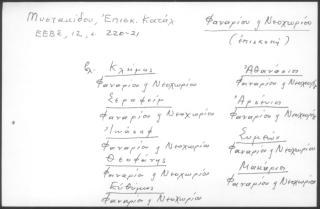 Μυστακίδου, Ἐπισκ. Κατάλ
ΕΕΒΣ, 12, σ. 220-21
Φαναρίου ἢ Νεοχωρίου
(ἐπισκοπή)
βλ. Κλήμης
Φαναρίου ἢ Νεοχωρίου
Σεραφείμ
Φαναρίου ἢ Νεοχωρίου
Ἰωάσαφ
Φαναρίου ἢ Νεοχωρίου
Θεοφάνης
Φαναρίου ἢ Νεοχωρίου
Εὐθύμιος
Φαναρίου ἢ Νεοχωρίου
Ἀθανάσιος
Φαναρίου ἢ Νεοχωρίου
Ἀρσένιος
Φαναρίου ἢ Νεοχωρίου
Συμεών
Φαναρίου ἢ Νεοχωρίου
Μακάριος
Φαναρίου ἢ Νεοχωρίου